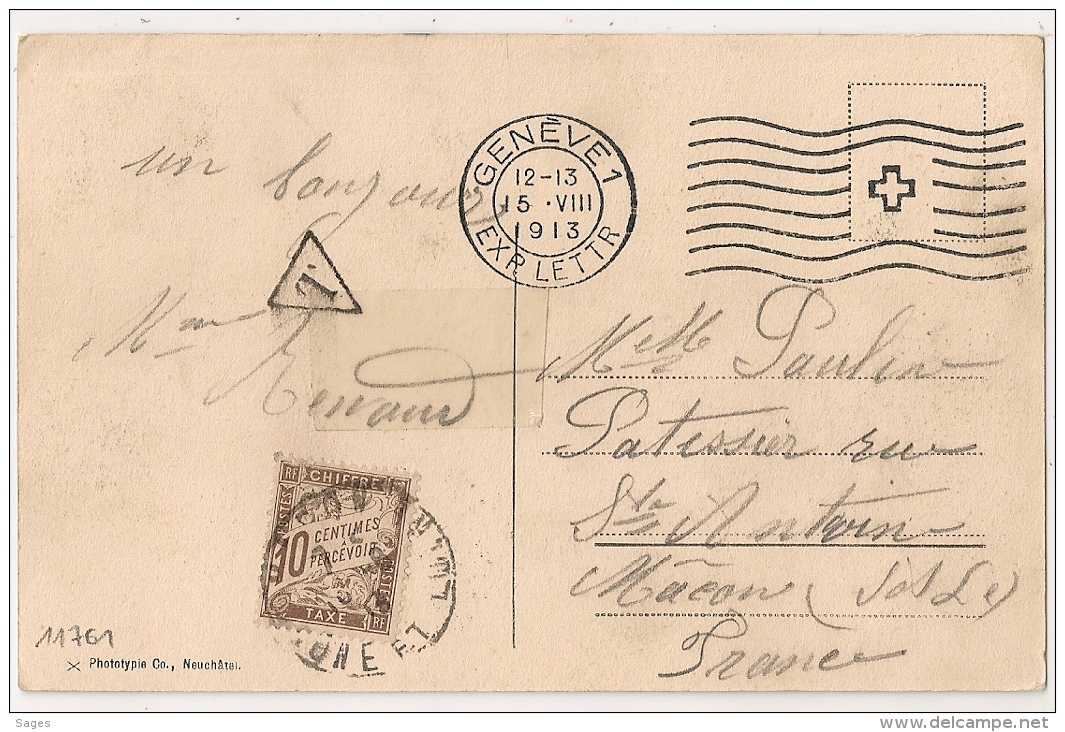 un bonjour
GENÈVE 1
12-13
15 ·VIII
1913
EXP. LETTR.
T.
Mme
Renaud
Melle Paulin
Patissier rue
Ste Antoin
Mâcon (S et Le)
France
RF CHIFFRE
POSTES
10 CENTIMES
À
PERCEVOIR
TAXE RF
11761
Phototypie Co., Neuchâtel.
Sages
www.delcampe.net